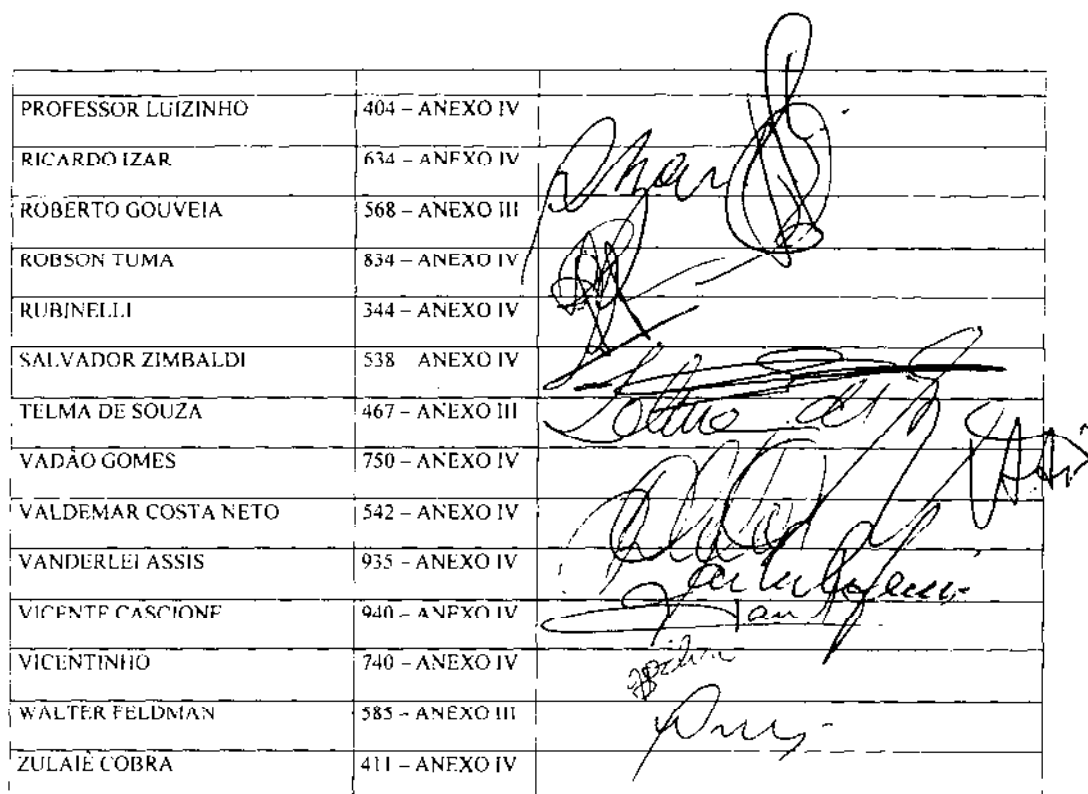 PROFESSOR LUIZINHO 404 – ANEXO IV
RICARDO IZAR 634 – ANEXO IV
ROBERTO GOUVEIA 568 – ANEXO III
ROBSON TUMA 834 – ANEXO IV
RUBINELLI 344 – ANEXO IV
SALVADOR ZIMBALDI 538 ANEXO IV
TELMA DE SOUZA 467 – ANEXO III
VADÃO GOMES 750 – ANEXO IV
VALDEMAR COSTA NETO 542 – ANEXO IV
VANDERLEI ASSIS 935 – ANEXO IV
VICENTE CASCIONE 940 – ANEXO IV
VICENTINHO 740 – ANEXO IV
WALTER FELDMAN 585 – ANEXO III
ZULAIÊ COBRA 411 – ANEXO IV